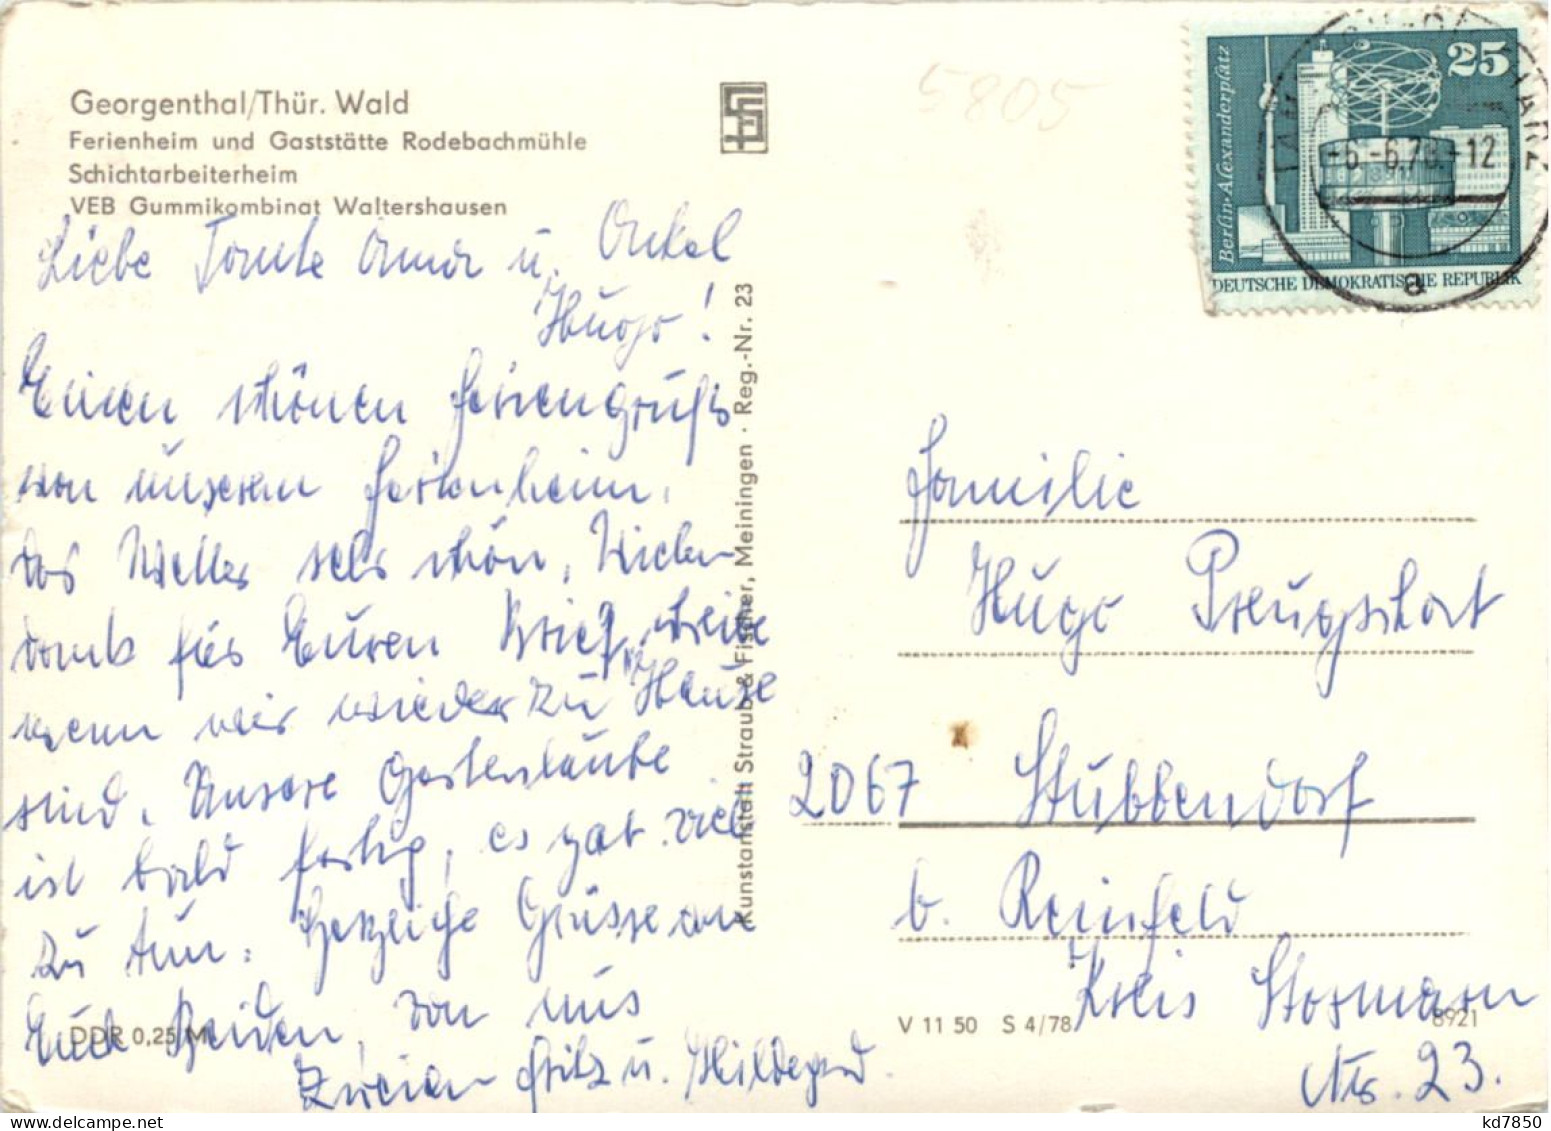 Georgenthal/Thür. Wald
Ferienheim und Gaststätte Rodebachmühle
Schichtarbeiterheim
VEB Gummikombinat Waltershausen
Liebe Tante Anna u. Onkel
Hugo!
Einen schönen Feriengruß
von unserem Ferienheim.
das Wetter sehr schön, Vielen
dank für Euren Brief, schreibe
wenn wir wieder zu Hause
sind. Unsere Gartenlaube
ist bald fertig, es gab viel
zu tun. Herzliche Grüsse an
Euch Beiden von uns
Zweien Fritz u. Hildegard.
DDR 0,25 M
Kunstanstalt Straub & Fischer, Meiningen · Reg.-Nr. 23
5805
Berlin-Alexanderplatz
25
DEUTSCHE DEMOKRATISCHE REPUBLIK
-6.-6.78.-12
a
Familie
Hugo Preugschat
2067 Stubbendorf
b. Reinfeld
Kreis Stormarn
Nr. 23.
V 11 50 S 4/78
8921
kd7850